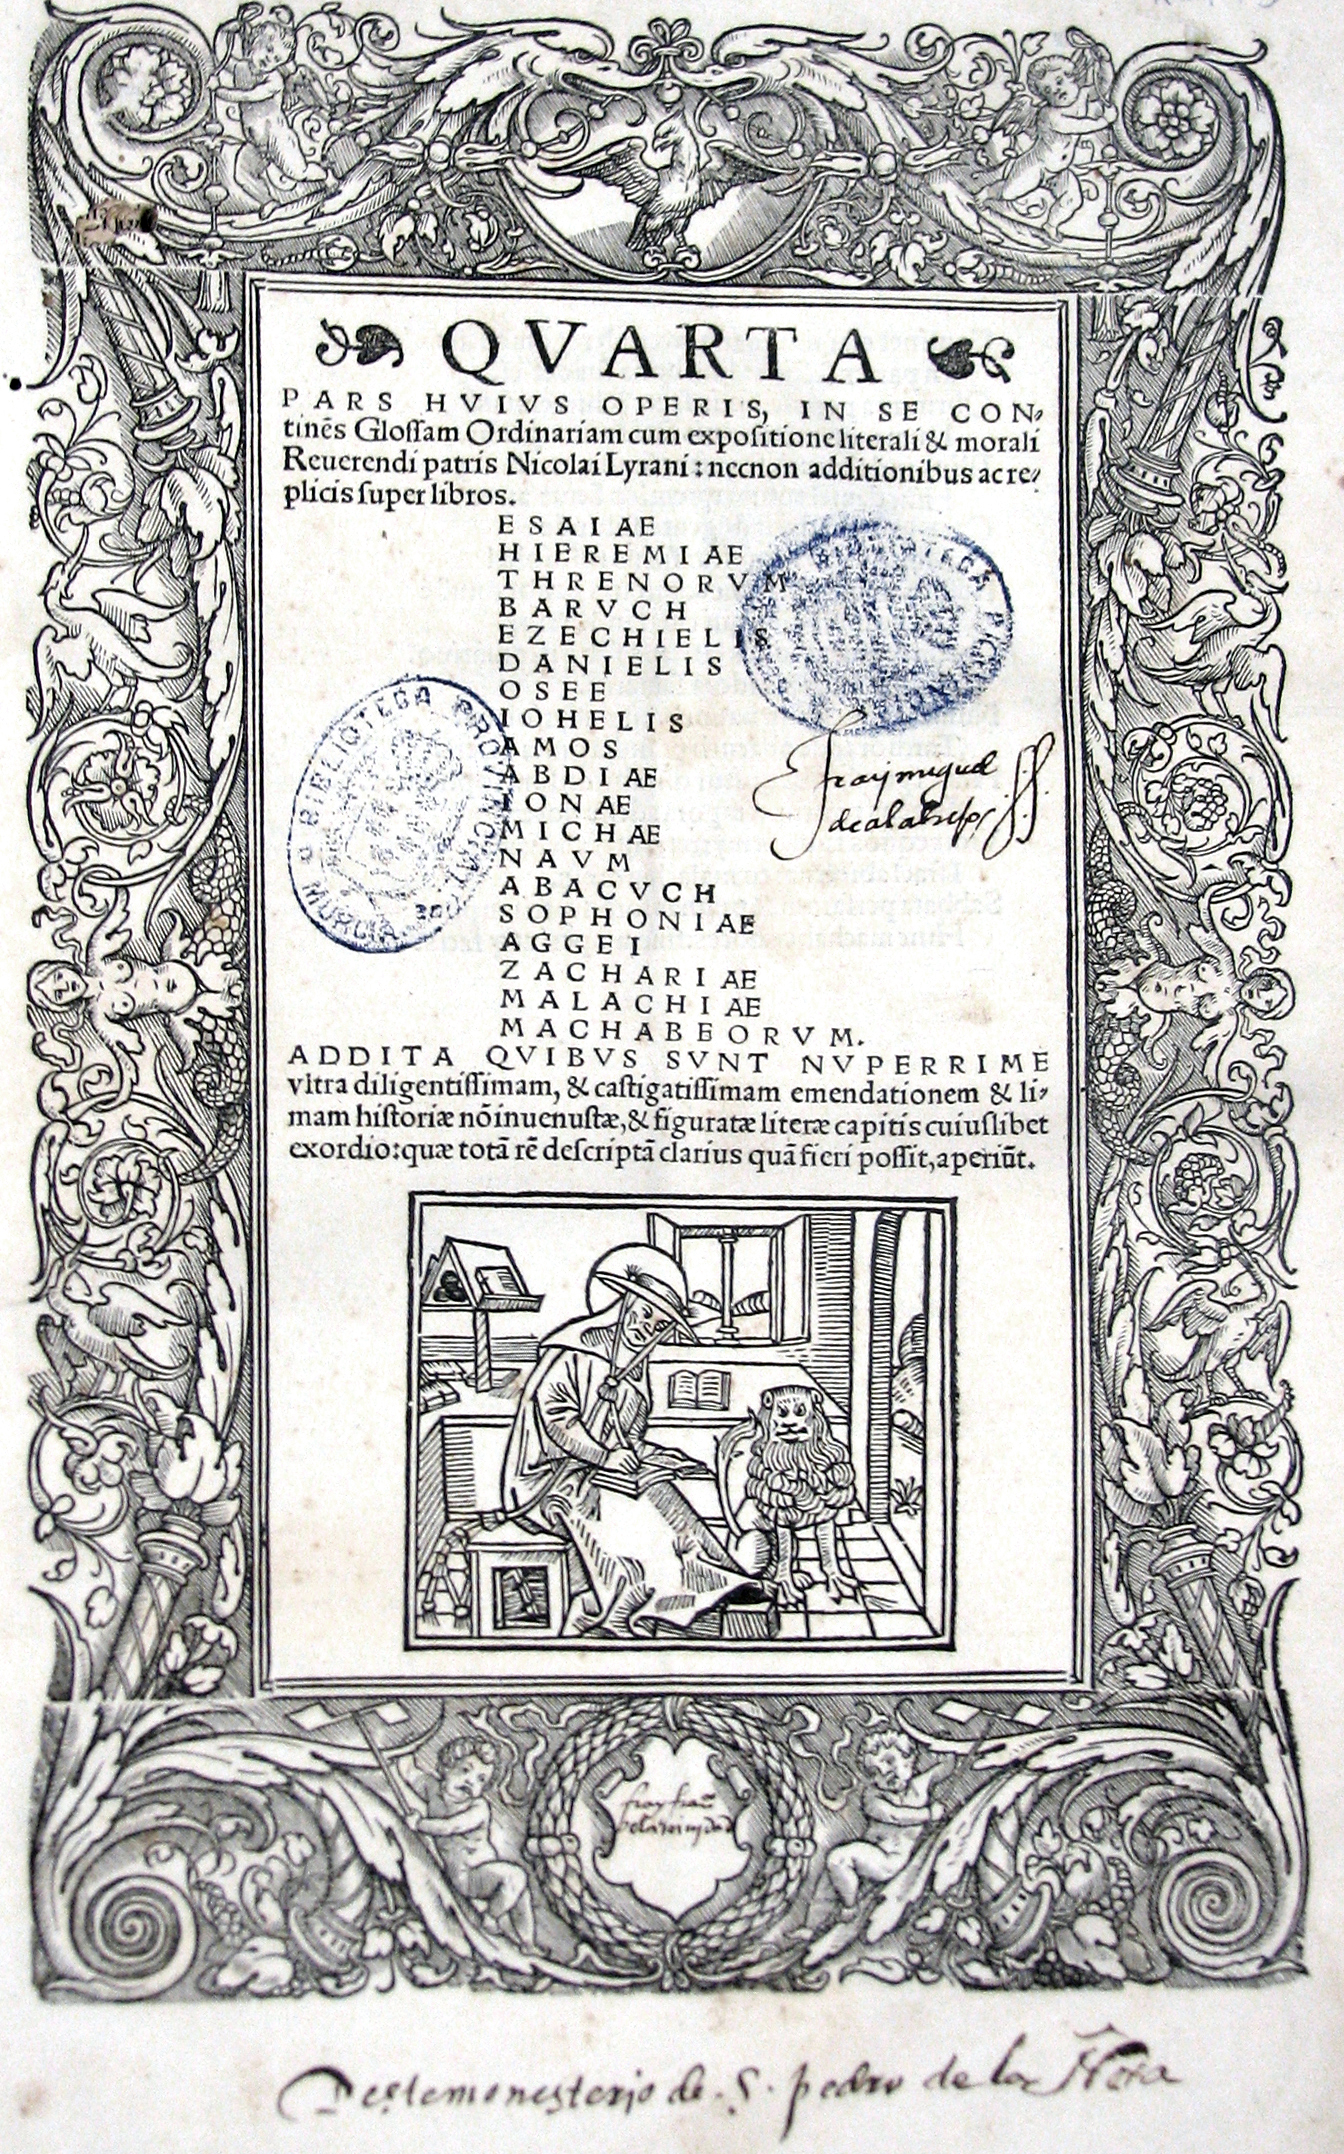 QVARTA
PARS HVIVS OPERIS, IN SE CON-
tinēs Gloſſam Ordinariam cum expoſitione literali & morali
Reuerendi patris Nicolai Lyrani: necnon additionibus ac re-
plicis ſuper libros.
ESAIAE
HIEREMIAE
THRENORVM
BARVCH
EZECHIELIS
DANIELIS
OSEE
IOHELIS
AMOS
ABDIAE
IONAE
MICHAE
NAVM
ABACVCH
SOPHONIAE
AGGEI
ZACHARIAE
MALACHIAE
MACHABEORVM.
BIBLIOTECA PROVINCIAL
MURCIA
fray miguel
ADDITA QVIBVS SVNT NVPERRIME
vltra diligentiſſimam, & caſtigatiſſimam emendationem & li-
mam hiſtoriæ nō inuenuſtæ, & figuratæ literæ capitis cuiuſlibet
exordio: quæ totā rē deſcriptā clarius quā fieri poſſit, aperiūt.
fray
Deste monesterio de . S . pedro de la Ñora